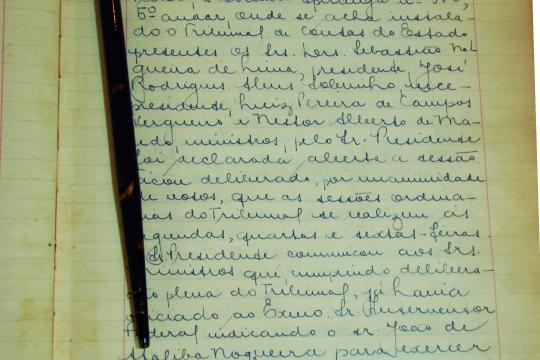 5º andar, onde se acha instala-
do o Tribunal de Contas do Estado
presentes os Srs. Drs. Sebastião No-
gueira de Lima, presidente, José
Rodrigues Alves Sobrinho, vice-
presidente, Luiz Pereira de Campos
Vergueiro e Nestor Alberto de Ma-
cedo, ministros, pelo Sr. Presidente
foi declarada aberta a sessão
ficou deliberado, por unanimidade
de votos, que as sessões ordina-
rias do Tribunal se realizem ás
segundas, quartas e sextas-feiras.
O Sr. Presidente communicou aos Srs.
Ministros que, cumprindo delibera-
ção plena do Tribunal, já havia
officiado ao Exmo. Sr. Interventor
Federal indicando o sr. João de
Nogueira para exercer